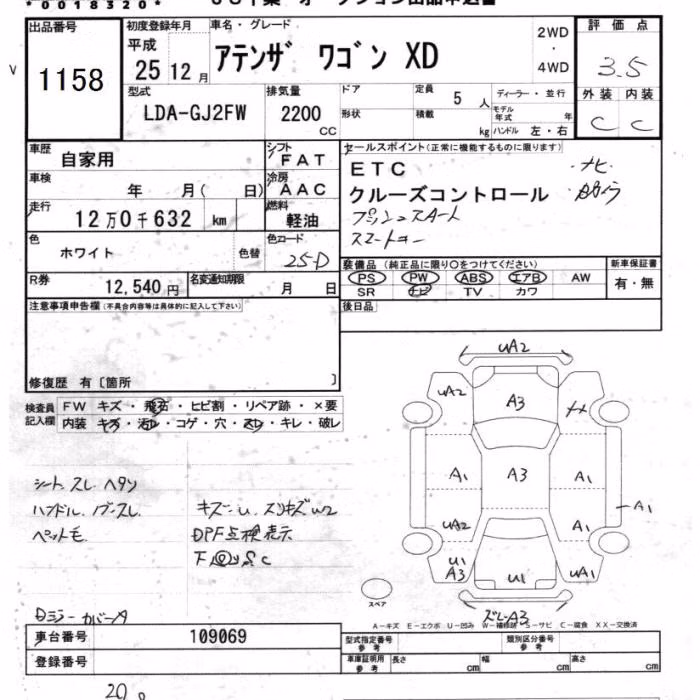 *0018320*
出品番号
1158
初度登録年月
平成
25 12 月
車名・グレード
アテンザ ワゴン XD
2WD
・
4WD
評価点
3.5
外装 内装
C C
型式
LDA-GJ2FW
排気量
2200
CC
ドア
形状
定員
5 人
積載
kg
ディーラー・並行
モデル年式 年
ハンドル 左・右
車歴
自家用
シフト
FAT
車検
年 月( 日)
冷房
AAC
走行
12万0千632 km
燃料
軽油
色
ホワイト
色替
色コード
25-D
R券
12,540 円
名変通知期限
月 日
セールスポイント(正常に機能するものに限ります)
ETC
・ナビ
クルーズコントロール
プッシュスタート
スマートキー
装備品 (純正品に限り○をつけてください)
PS PW ABS エアB AW
SR ナビ TV カワ
新車保証書
有・無
後日品
注意事項申告欄(不具合内容等は具体的に記入して下さい)
修復歴 有〔箇所 〕
検査員
記入欄
FW キズ・飛石・ヒビ割・リペア跡・×要
内装 キズ・汚れ・コゲ・穴・スレ・キレ・破レ
シート スレ ヘタリ
ハンドル、ノブスレ
ペット毛
キズ・U、スリキズW2
DPF点検表示
UA2
UA2
A3
A1
A3
A1
A1
UA2
A1
U1
A3
U1
UA1
スペア
ズレA3
A-キズ E-エクボ U-凹み W-補修跡 S-サビ C-腐食 XX-交換済
Dミラーカバー A
車台番号
109069
登録番号
型式指定番号
参考
類別区分番号
参考
車庫証明用
参考
長さ cm
幅 cm
高さ cm